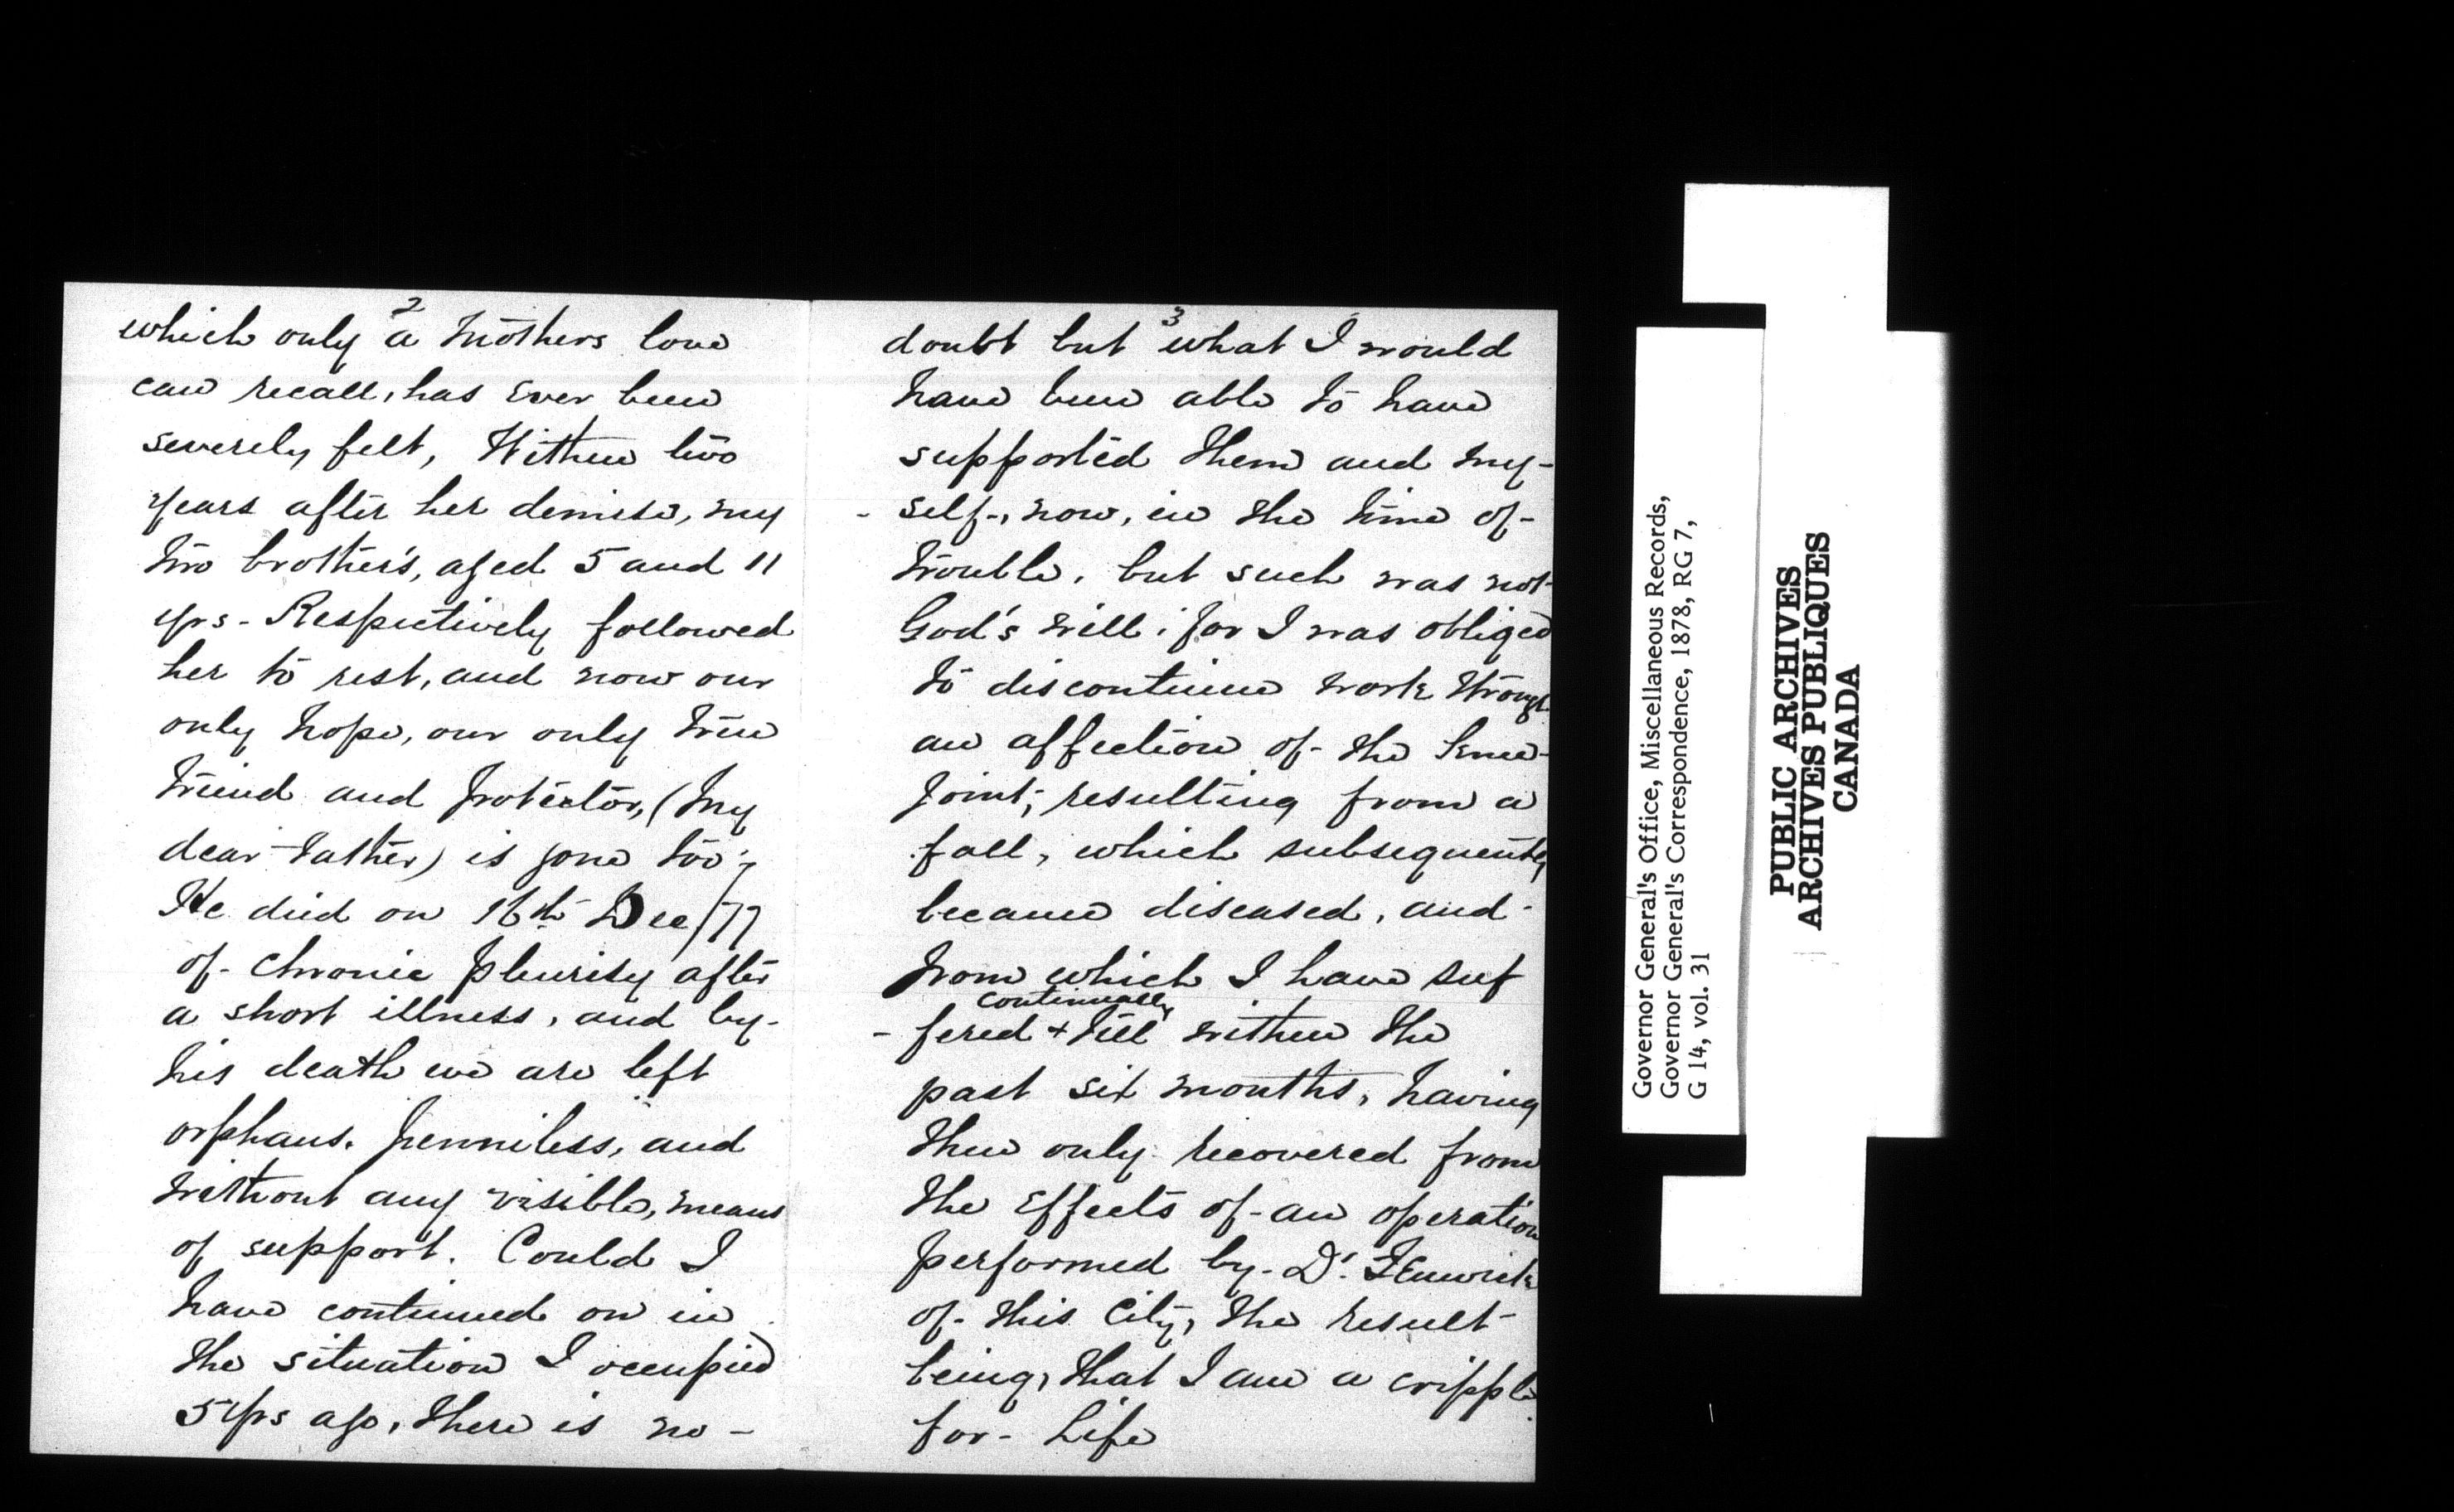 2
which only a Mothers love
can recall, has ever been
severely felt, Within two
years after her demise, my
two brother's, aged 5 and 11
yrs - Respectively followed
her to rest, and now our
only hope, our only true
Friend and Protector, (My
dear Father) is gone too;
He died on 16th Dec/77
of Chronic Pleurisy after
a short illness, and by
his death we are left
orphans. Penniless, and
without any visible, means
of support. Could I
have continued on in
the situation I occupied
5 yrs ago, there is no -
3
doubt but what I would
have been able to have
supported them and my-
- self, now, in the time of
trouble, but such was not
God's will; for I was obliged
to discontinue work through
an affection of the Knee-
Joint; resulting from a
fall, which subsequently
became diseased, and
from which I have suf
continually
- fered + till within the
past six months, having
then only recovered from
the Effects of an operation
performed by Dr. Fenwick
of this City, the result
being, that I am a cripple
for Life
Governor General's Office, Miscellaneous Records,
Governor General's Correspondence, 1878, RG 7,
G 14, vol. 31
PUBLIC ARCHIVES
ARCHIVES PUBLIQUES
CANADA